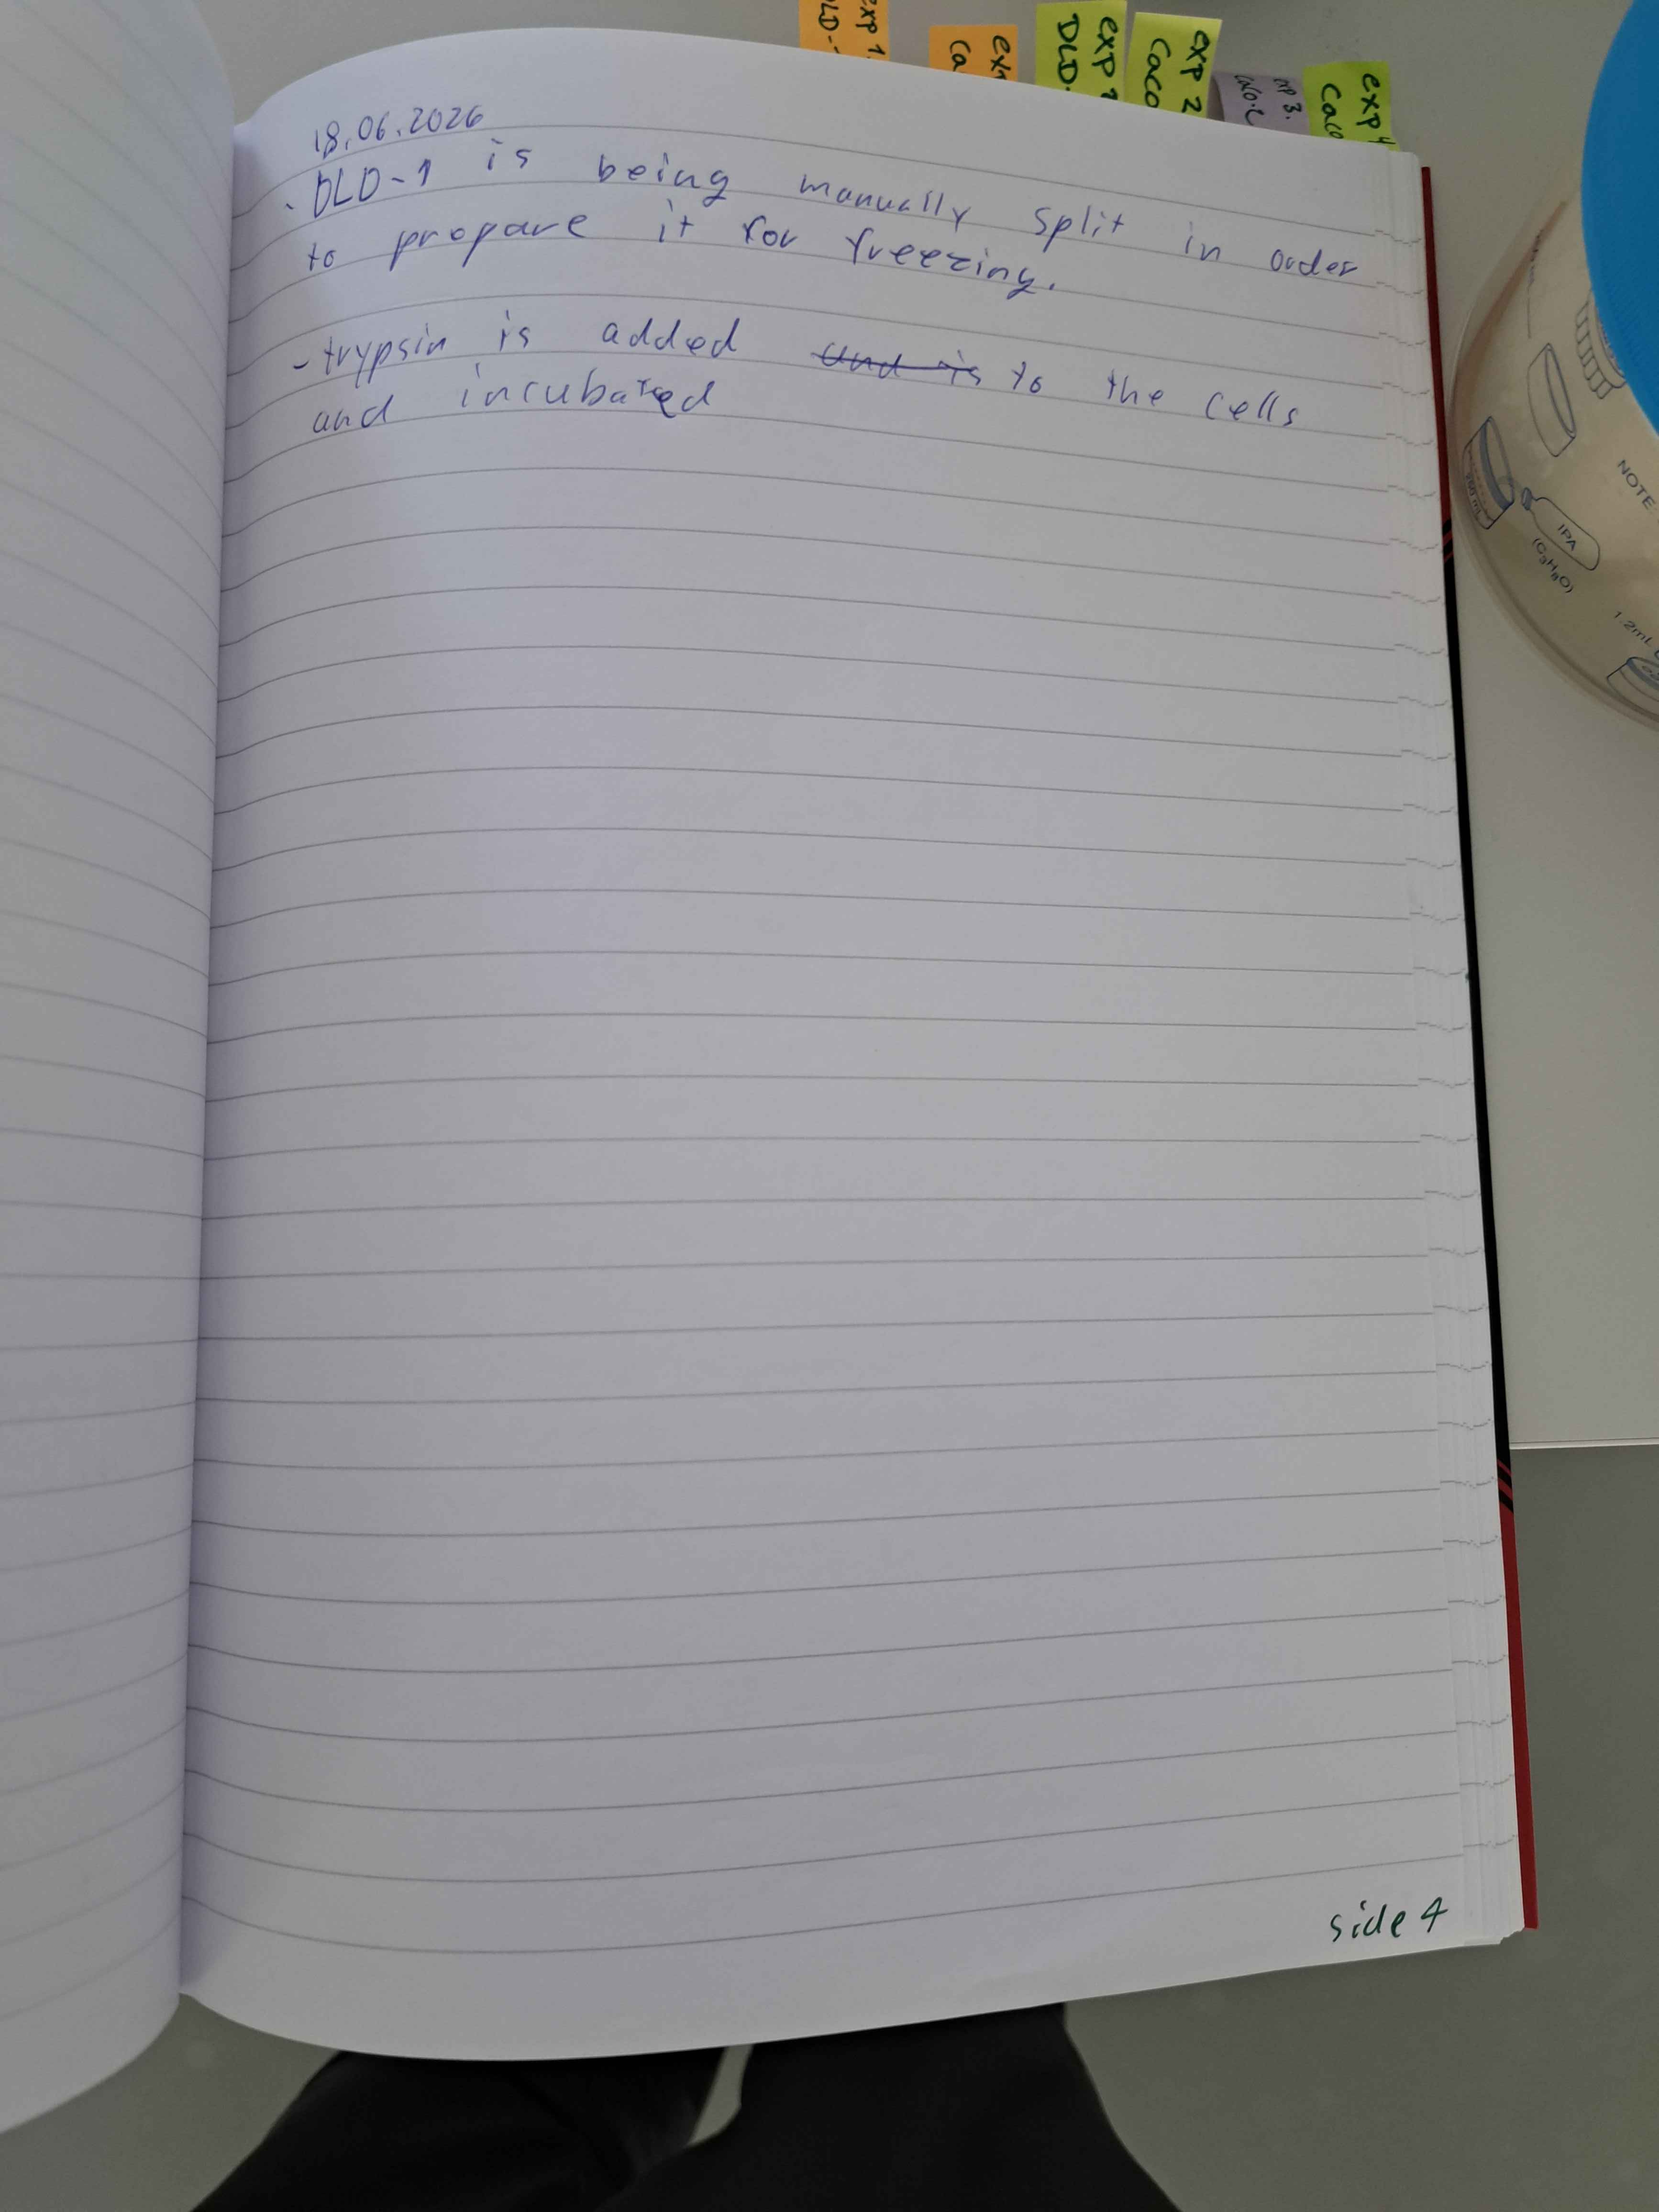 exp 1.
DLD-
exp
Ca
exp 2
DLD.
exp 2
Caco
exp 3.
CaCo-2
exp 4
Caco
18.06.2026
. DLD-1 is being manually split in order
to prepare it for freezing.
- trypsin is added and is to the cells
and incubated
side 4
NOTE
IPA
(C3H8O)
1.2mL